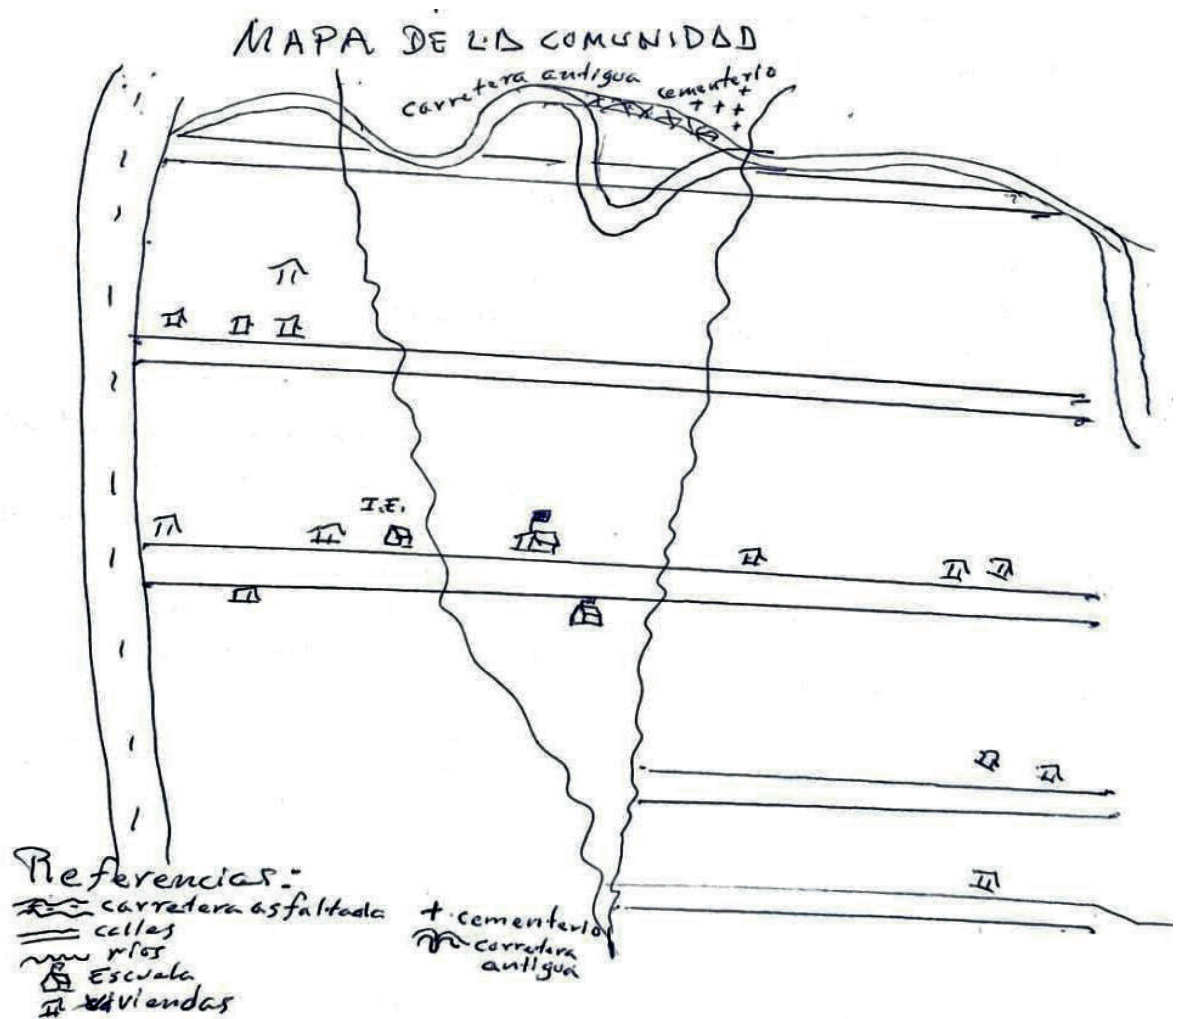 MAPA DE LA COMUNIDAD
carretera antigua
cementerio
I.E.
Referencias:
carretera asfaltada
calles
ríos
Escuela
viviendas
+ cementerio
carretera
antigua